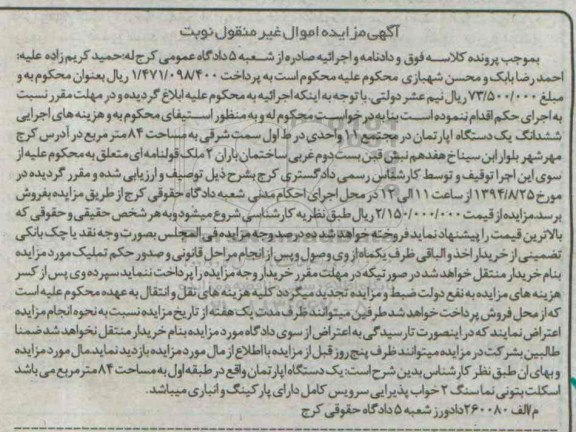 آگهی مزایده اموال غیر منقول نوبت
بموجب پرونده کلاسه فوق و دادنامه و اجرائیه صادره از شعبه ۵ دادگاه عمومی کرج له: حمید کریم زاده علیه:
احمد رضا بابک و محسن شهبازی محکوم علیه محکوم است به پرداخت ۱/۴۷۱/۰۹۸/۴۰۰ ریال بعنوان محکوم به و
مبلغ ۷۳/۵۰۰/۰۰۰ ریال نیم عشر دولتی. با توجه به اینکه اجرائیه به محکوم علیه ابلاغ گردیده و در مهلت مقرر نسبت
به اجرای حکم اقدام ننموده است بنا به درخواست محکوم له و به منظور استیفای محکوم به و هزینه های اجرایی
ششدانگ یک دستگاه اپارتمان در مجتمع ۱۱ واحدی در ط اول سمت شرقی به مساحت ۸۴ متر مربع در آدرس کرج
مهر شهر بلوار ابن سینا خ هفدهم نبش قبن بست دوم غربی ساختمان باران ۲ ملک قولنامه ای متعلق به محکوم علیه از
سوی این اجرا توقیف و توسط کارشناس رسمی دادگستری کرج بشرح ذیل توصیف و ارزیابی شده و مقرر گردیده در
مورخ ۱۳۹۴/۸/۲۵ از ساعت ۱۱ الی ۱۲ در محل اجرای احکام مدنی شعبه دادگاه حقوقی کرج از طریق مزایده بفروش
برسد مزایده از قیمت ۲/۱۵۰/۰۰۰/۰۰۰ ریال طبق نظریه کارشناسی شروع میشود و به هر شخص حقیقی و حقوقی که
بالاترین قیمت را پیشنهاد نماید فروخته خواهد شد ده درصد وجه مزایده فی المجلس بصورت وجه نقد یا چک بانکی
تضمینی از خریدار اخذ و الباقی ظرف یکماه از وی وصول و پس از انجام مراحل قانونی و صدور حکم تملیک مورد مزایده
بنام خریدار منتقل خواهد شد در صورتیکه در مهلت مقرر خریدار وجه مزایده را پرداخت ننماید سپرده وی پس از کسر
هزینه های مزایده به نفع دولت ضبط و مزایده تجدید میگردد کلیه هزینه های نقل و انتقال به عهده محکوم علیه است
که از محل فروش پرداخت خواهد شد طرفین میتوانند ظرف مدت یک هفته از تاریخ مزایده نسبت به نحوه انجام مزایده
اعتراض نمایند که در اینصورت تا رسیدگی به اعتراض از سوی دادگاه مورد مزایده بنام خریدار منتقل نخواهد شد ضمنا
طالبین بشرکت در مزایده میتوانند ظرف پنج روز قبل از مزایده با اطلاع از مال مورد مزایده بازدید نماید مال مورد مزایده
و بهای آن طبق نظر کارشناس بدین شرح است: یک دستگاه اپارتمان واقع در طبقه اول به مساحت ۸۴ متر مربع می باشد
اسکلت بتونی نما سنگ ۲ خواب پذیرایی سرویس کامل دارای پارکینگ و انباری میباشد.
م/الف ۲۶۰۰۸۰ دادورز شعبه ۵ دادگاه حقوقی کرج